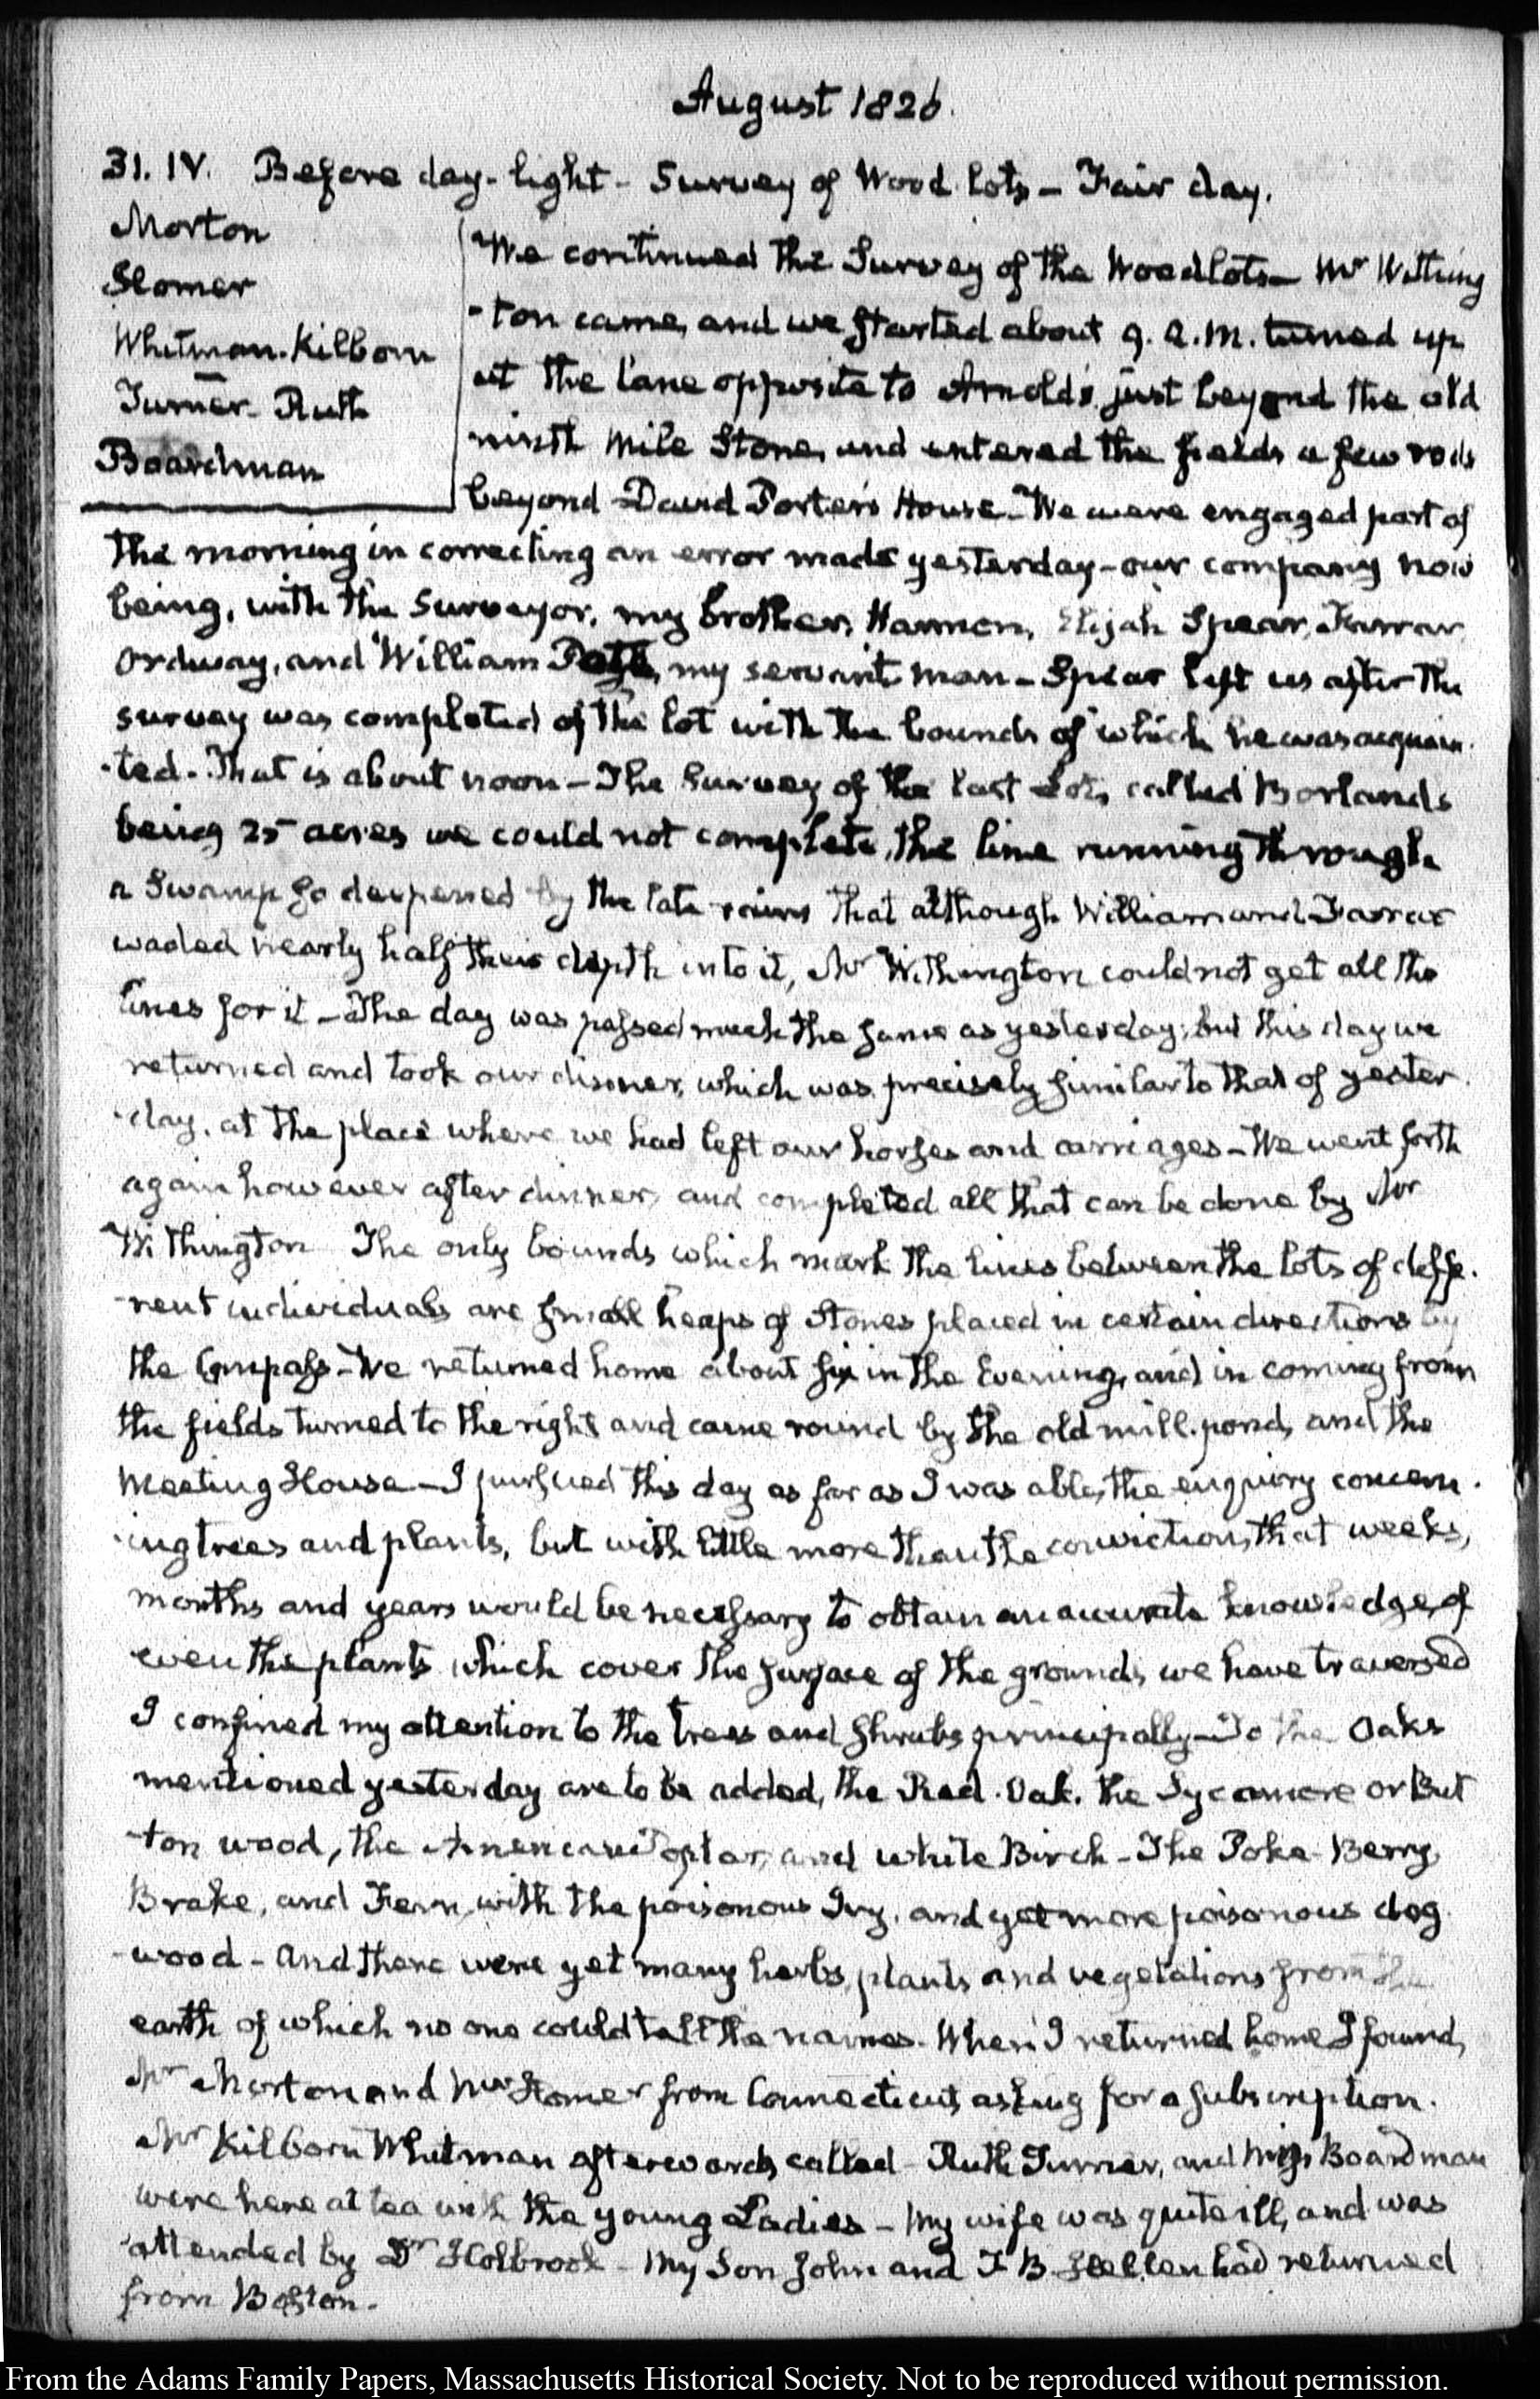 August 1826.
31. IV. Before day-light - Survey of Wood lots - Fair day.
Morton
Homer
Whitman. Kilborn
Turner. Ruth
Boardman
We continued the Survey of the Woodlots - Mr Withing
-ton came, and we started about 9. a.m. turned up
at the lane opposite to Arnold's just beyond the old
ninth mile Stone, and entered the fields a few rods
beyond David Porter's House - We were engaged part of
the morning in correcting an error made yesterday - our company now
being, with the Surveyor, my brother, Harmon, Elijah Spear, Farrar
Ordway, and William my servant man - Spear left us after the
survey was completed of the lot with the bounds of which he was acquain-
-ted. That is about noon - The Survey of the last Lot, called Borlands
being 25 acres we could not complete, the line running through
a Swamp so deepened by the late rains that although William and Farrar
waded nearly half their depth into it, Mr Withington could not get all the
lines for it - The day was passed much the same as yesterday; but this day we
returned and took our dinner, which was precisely similar to that of yester-
-day, at the place where we had left our horses and carriages - We went forth
again however after dinner, and completed all that can be done by Mr
Withington The only bounds which mark the lines between the lots of diffe-
-rent individuals are small heaps of Stones placed in certain directions by
the Compass - We returned home about six in the Evening, and in coming from
the fields turned to the right and came round by the old mill-pond, and the
Meeting House - I pursued this day as far as I was able, the enquiry concern-
-ing trees and plants, but with little more than the conviction, that weeks,
months and years would be necessary to obtain an accurate knowledge, of
even the plants which cover the surface of the grounds we have traversed
I confined my attention to the trees and shrubs principally - To the Oaks
mentioned yesterday are to be added, the Red. Oak. the Sycamore or But
-ton wood, the American Poplar, and white Birch - The Poke Berry,
Brake, and Fern, with the poisonous Ivy, and yet more poisonous dog
-wood - And there were yet many herbs, plants and vegetations from the
earth of which no one could tell the names. When I returned home I found,
Mr Morton and Mr Homer from Connecticut, asking for a subscription.
Mr Kilborn Whitman afterwards called - Ruth Turner, and Miss Boardman
were here at tea with the young Ladies - My wife was quite ill, and was
attended by Dr Holbrook - My Son John and J. B. Hellen had returned
from Boston.
From the Adams Family Papers, Massachusetts Historical Society. Not to be reproduced without permission.